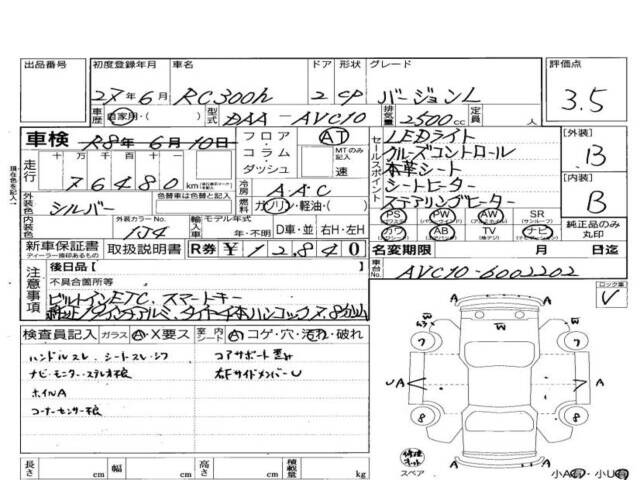 出品番号 初度登録年月 車名 ドア 形状 グレード 評価点
27年6月 RC300h 2 CP バージョンL 3.5
車歴 自家用・( ) 型式 DAA-AVC10 排気量 2500cc 定員 人
車検 R8年6月10日 フロア・コラム・ダッシュ AT MTのみ記入 速
走行 十万 万 千 百 十 76480 km
冷房 AAC
外装色 車色替は色替と記入 シルバー
燃料 ガソリン・軽油・( )
内装色 外装カラーNo. 1J4 輸入車 モデル年式 年・不明 D車・並 右H・左H
セールスポイント LEDライト
クルーズコントロール
本革シート
シートヒーター
ステアリングヒーター
PS PW AW SR
カワ AB TV ナビ
純正品のみ丸印
[外装] B
[内装] B
新車保証書 取扱説明書 R券 ¥12,840
ディーラー捺印あるもの
名変期限 月 日迄
車台No. AVC10-6002202
注意事項 後日品【 】
不具合箇所等
ビルトインETC、スマートキー
検査員記入 ガラス A・X要ス 室内シート A コゲ・穴・汚れ・破れ
ハンドルスレ シートスレ・シワ コアサポート
ナビ・モニター・ステレオ不良 右FサイドメンバーU
ホイルA
コーナーセンサー不良
ロック車 V
W W W
7 7
UA A A
8 8
A A
スペア
小A有・小U有
長さ cm 幅 cm 高さ cm 積載量 kg